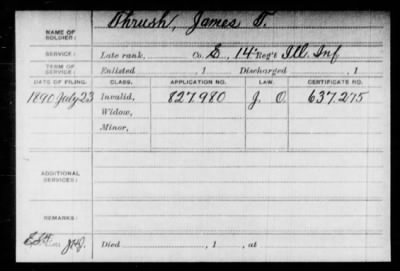 NAME OF SOLDIER: Thrush, James T.
SERVICE: Late rank, Co. E, 14 Reg't Ill. Inf
TERM OF SERVICE: Enlisted , 1 Discharged , 1
DATE OF FILING. CLASS. APPLICATION NO. LAW. CERTIFICATE NO.
1890 July 23 Invalid, 827.980 J. O. 637.275
Widow,
Minor,
ADDITIONAL SERVICES:
REMARKS:
Died , 1 , at